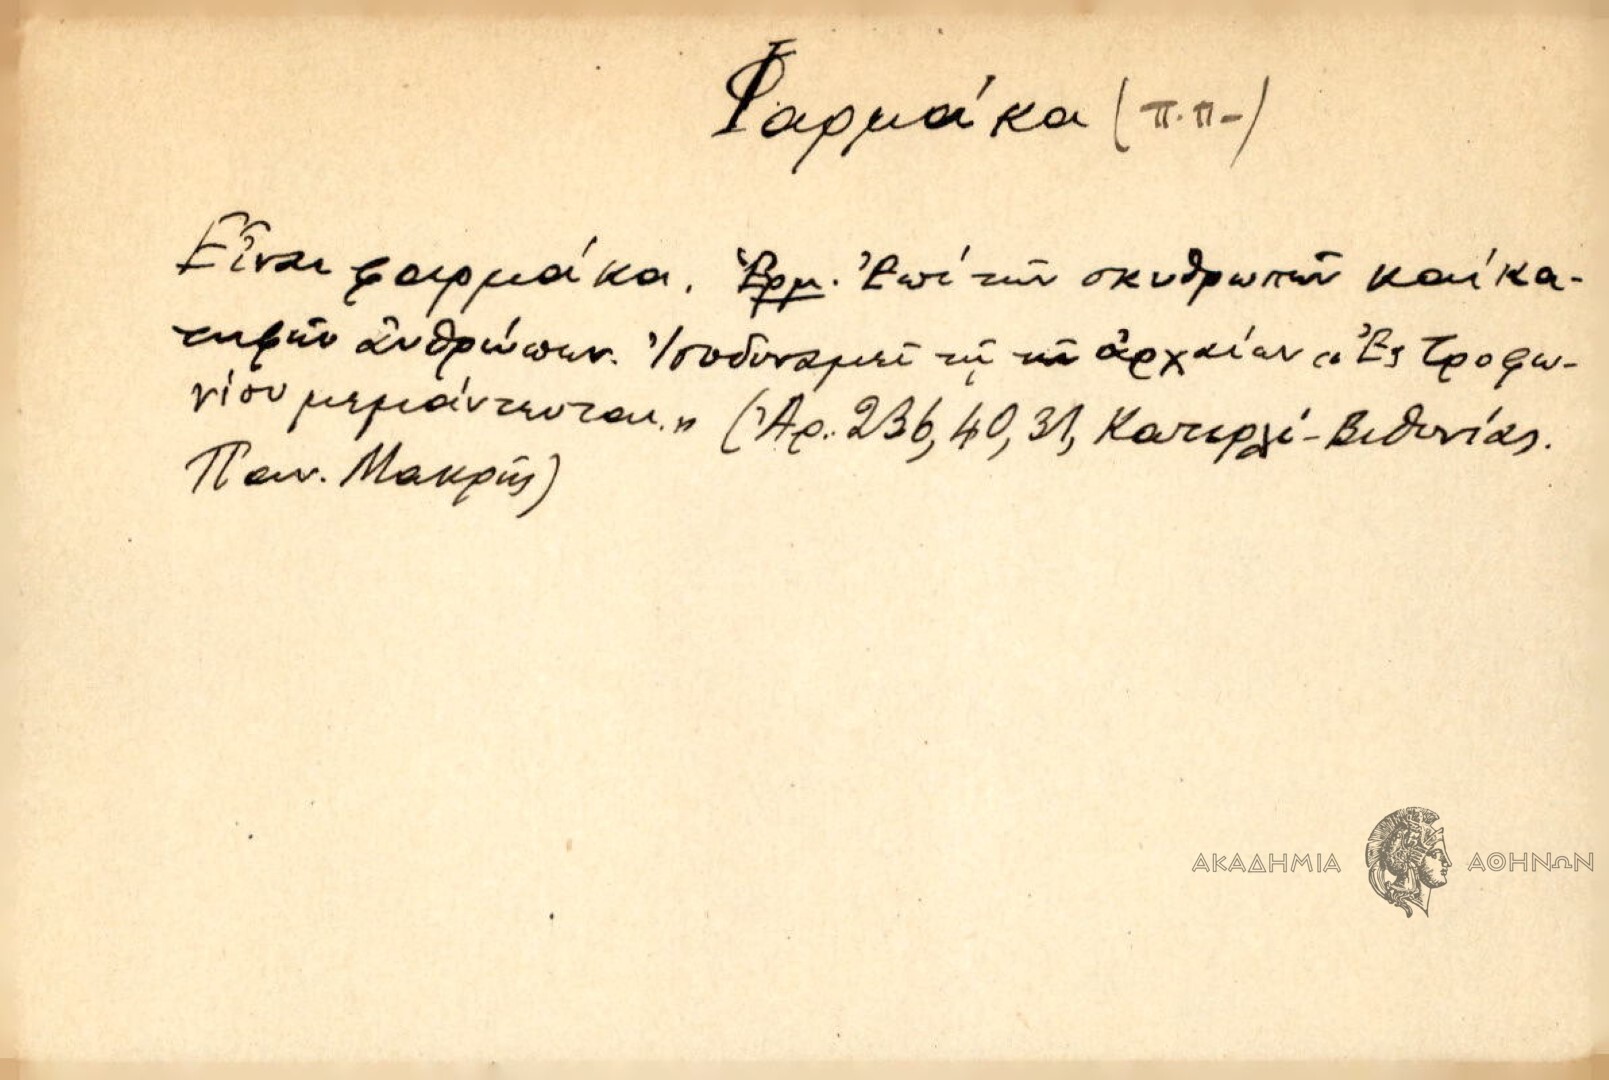 Φαρμάκα (π.π-)
Εἶναι φαρμάκα. Ἑρμ. Ἐπί τῶν σκυθρωπῶν καί κα-
τηφῶν ἀνθρώπων. Ἰσοδυναμεῖ τῇ τῶν ἀρχαίων «Ἐς Τροφω-
νίου μεμάντευται.» (Ἀρ. 236, 40, 31, Κατιρλί-Βιθυνίας.
Παν. Μακρῆς)
ΑΚΑΔΗΜΙΑ ΑΘΗΝΩΝ